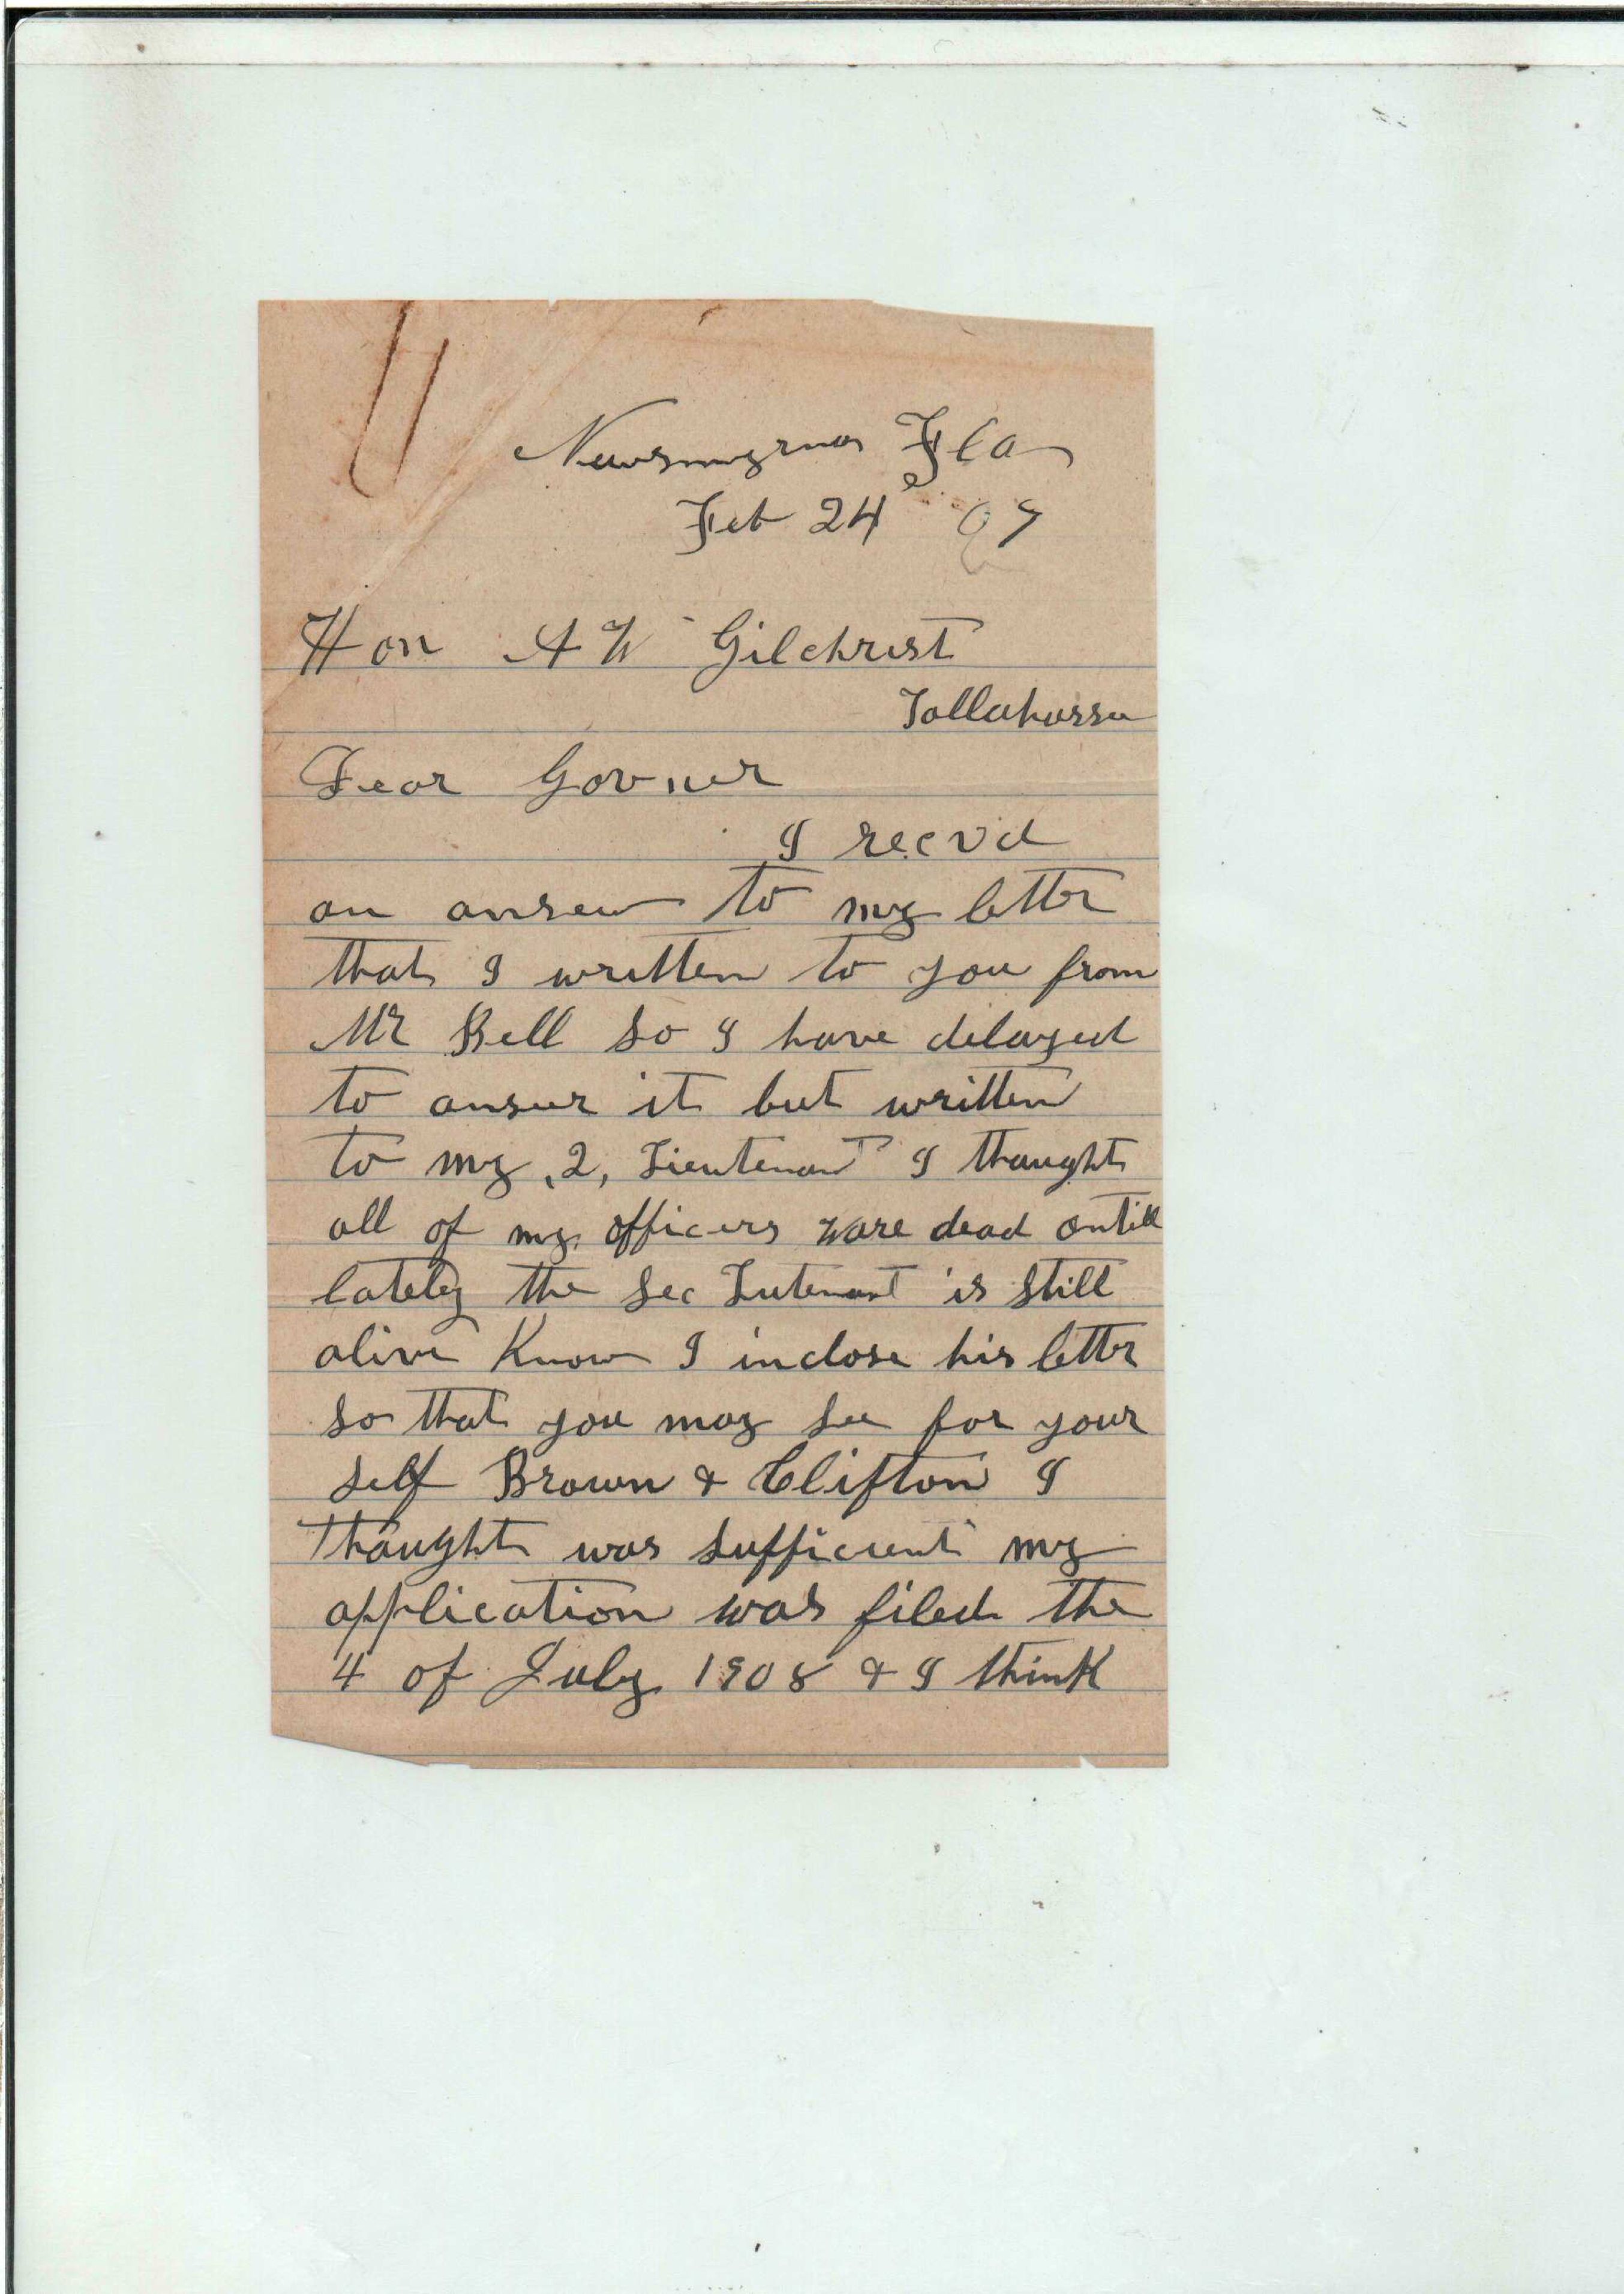 Newsmyrna Fla
Feb 24 09
Hon A W Gilchrist
Tallahassa
Dear Govner
I recvd
an ansew to my letter
that I written to you from
Mr Bell so I have delayed
to ansur it but written
to my ,2, Lieutenant I thought
all of my officers ware dead ontill
lately the Sec Lutenant is still
alive Know I inclose his letter
so that you may see for your
self Brown & Clifton I
thought was sufficient my
application was filed the
4 of July 1908 & I think